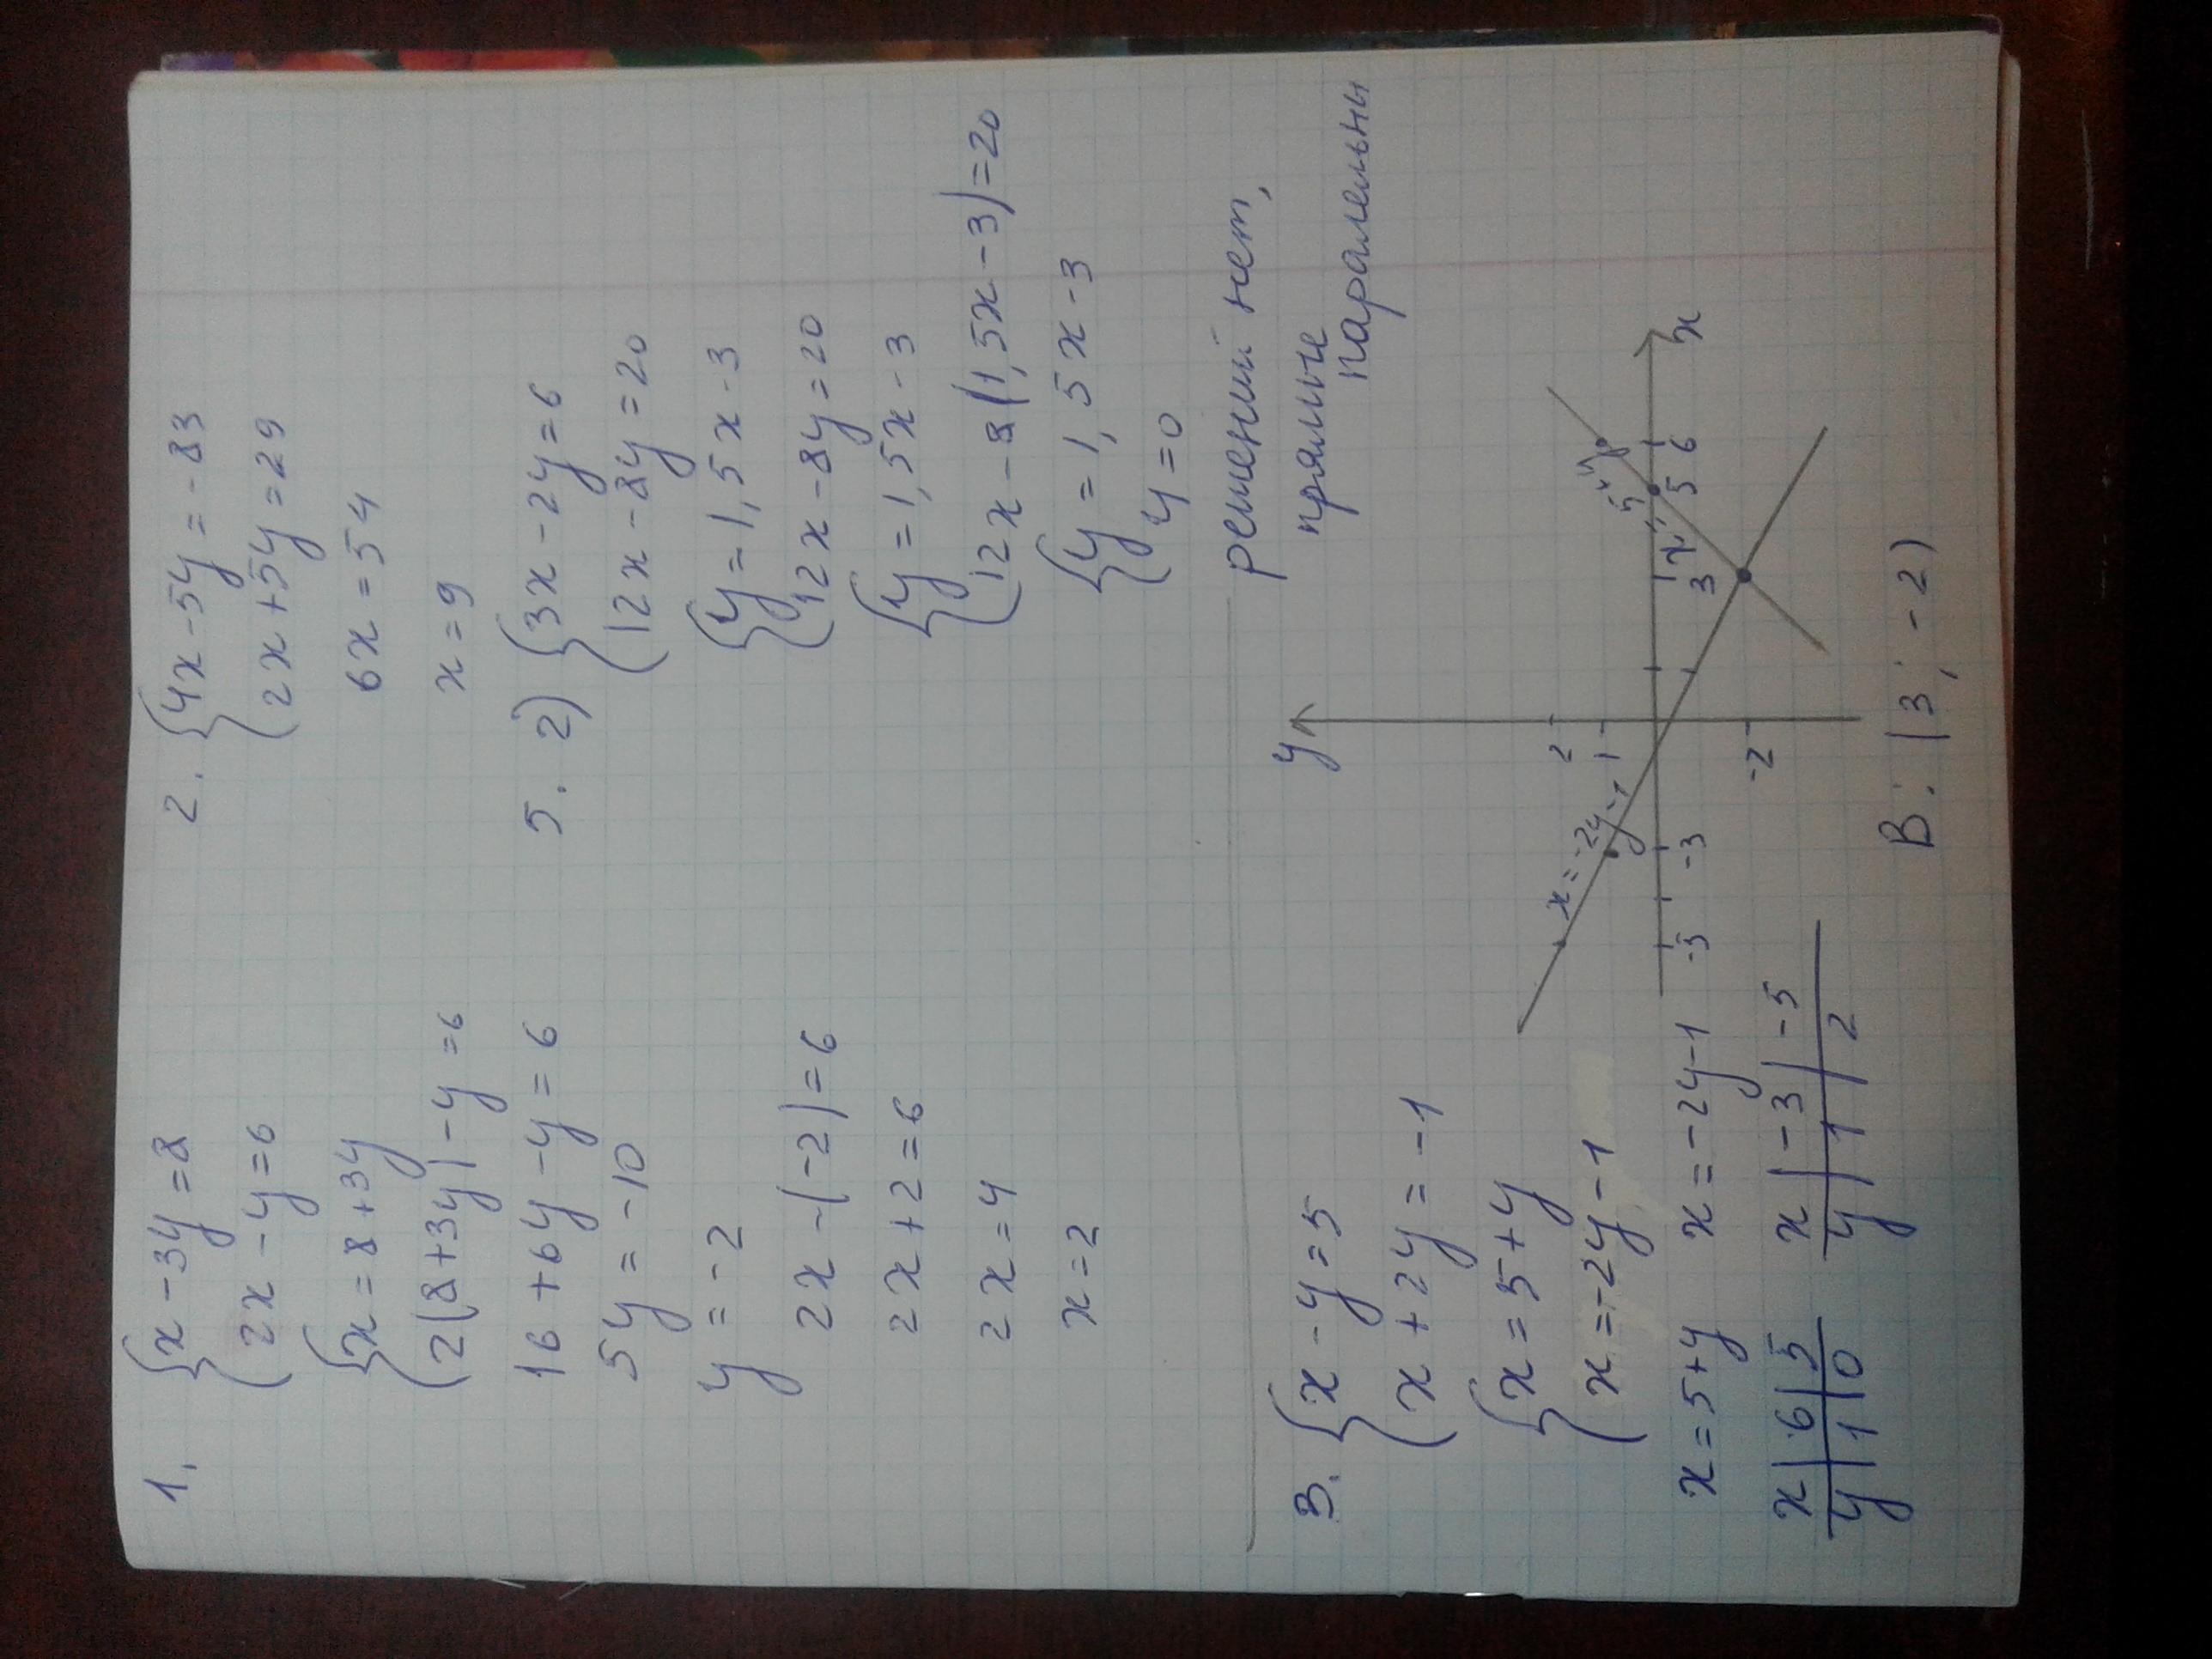 1. {x-3y=8
2x-y=6
{x=8+3y
2(8+3y)-y=6
16+6y-y=6
5y=-10
y=-2
2x-(-2)=6
2x+2=6
2x=4
x=2
2. {4x-5y=-83
2x+5y=29
6x=54
x=9
5. 2) {3x-2y=6
12x-8y=20
{y=1,5x-3
12x-8y=20
{y=1,5x-3
12x-8(1,5x-3)=20
{y=1,5x-3
4=0
решений нет,
прямые
паралельны
3. {x-y=5
x+2y=-1
{x=5+y
x=-2y-1
x=5+y x=-2y-1
x|6|5 x|-3|-5
y|1|0 y|1|2
y
2
1
x=-2y-1
-5 -3 3 5 6 x
-2
В: (3; -2)